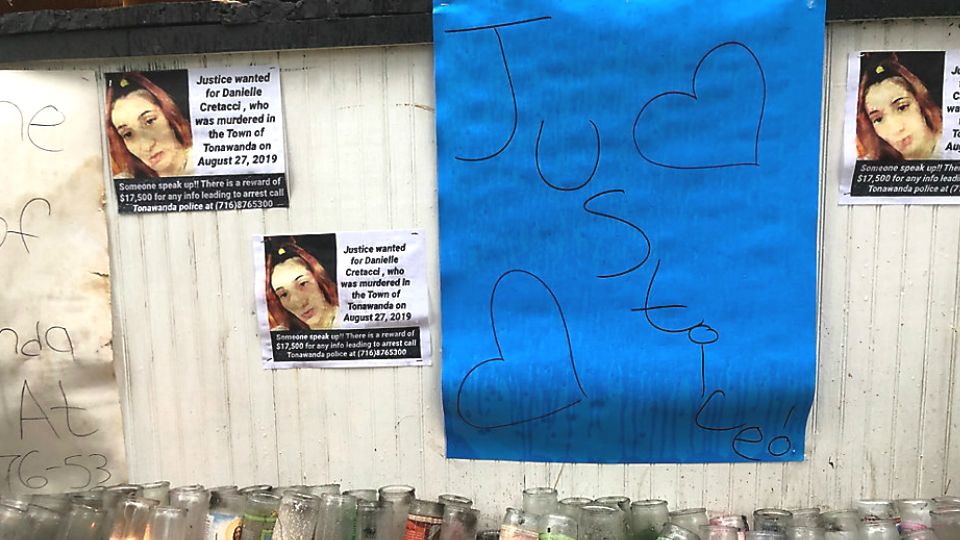 ne
of
nda
At
76-53
Justice wanted
for Danielle
Cretacci , who
was murdered in
the Town of
Tonawanda on
August 27, 2019
Someone speak up!! There is a reward of
$17,500 for any info leading to arrest call
Tonawanda police at (716)8765300
Justice wanted
for Danielle
Cretacci , who
was murdered in
the Town of
Tonawanda on
August 27, 2019
Someone speak up!! There is a reward of
$17,500 for any info leading to arrest call
Tonawanda police at (716)8765300
Justice!
Someone speak up!! There
$17,500 for any info leadi
Tonawanda police at (716